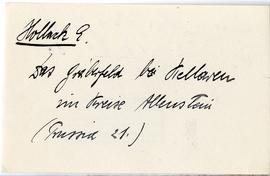 Hollack E.
Das Gräberfeld bei Kellaren
im Kreise Allenstein
(Prussia 21.)